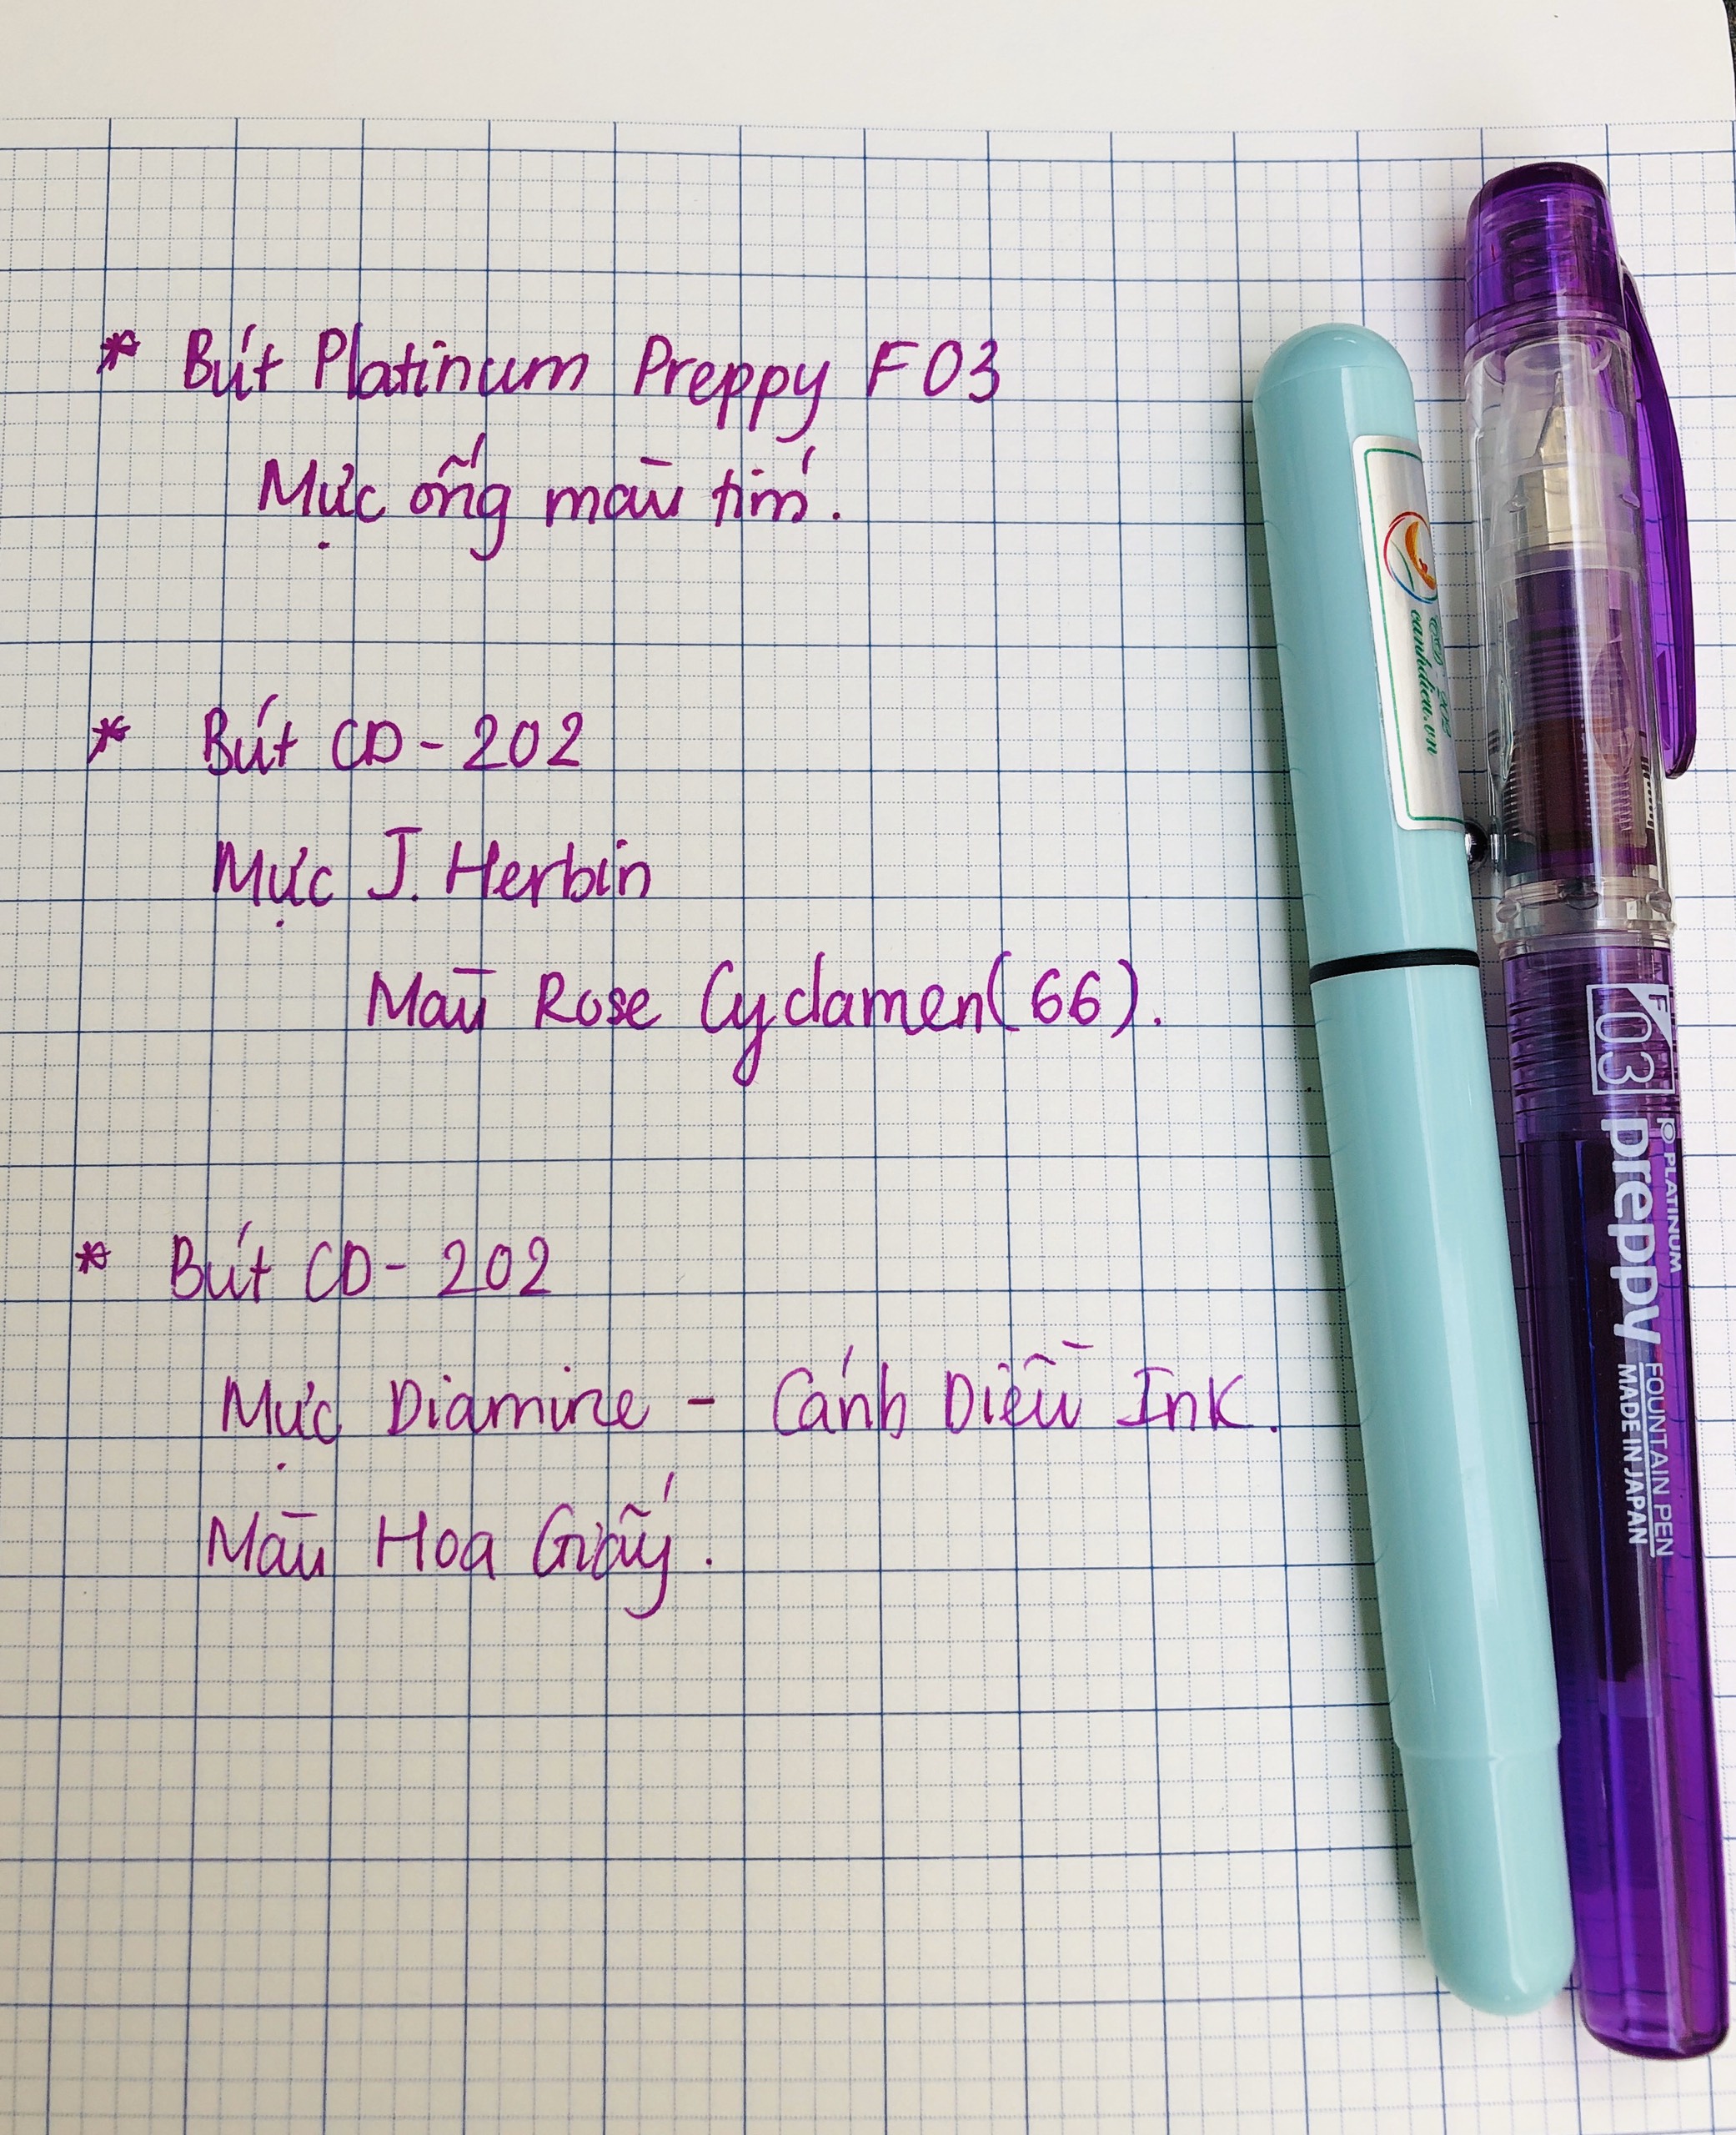 * Bút Platinum Preppy F03
Mực ống màu tím.
* Bút CD-202
Mực J. Herbin
Màu Rose Cyclamen (66).
* Bút CD-202
Mực Diamine - Cánh Diều Ink.
Màu Hoa Giấy.
canhdieu.vn
F 03
PLATINUM
preppy
FOUNTAIN PEN
MADE IN JAPAN